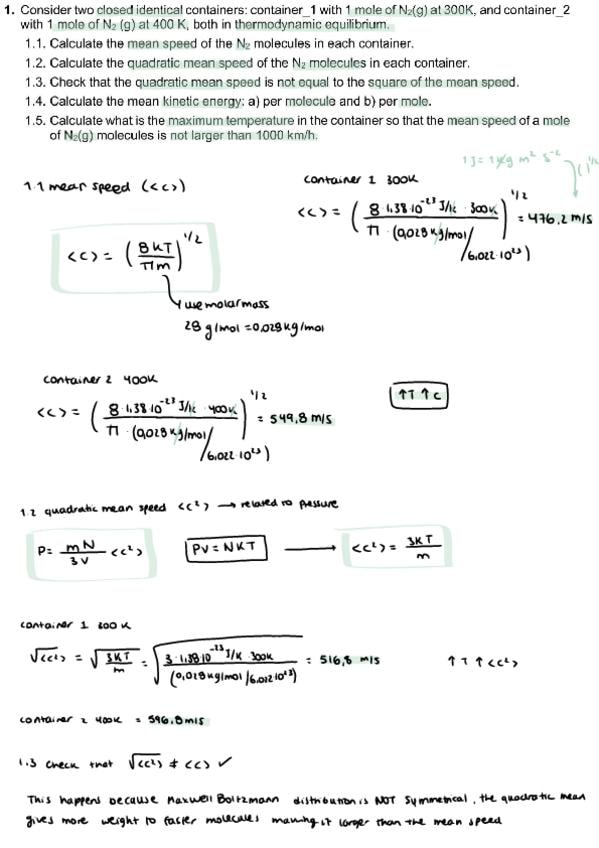 1. Consider two closed identical containers: container_1 with 1 mole of N₂(g) at 300K, and container_2
with 1 mole of N₂ (g) at 400 K, both in thermodynamic equilibrium.
1.1. Calculate the mean speed of the N₂ molecules in each container.
1.2. Calculate the quadratic mean speed of the N₂ molecules in each container.
1.3. Check that the quadratic mean speed is not equal to the square of the mean speed.
1.4. Calculate the mean kinetic energy: a) per molecule and b) per mole.
1.5. Calculate what is the maximum temperature in the container so that the mean speed of a mole
of N₂(g) molecules is not larger than 1000 km/h.
1 J = 1 kg m² s⁻² ( )^1/2
1.1 mean speed (<c>)
container 1 300K
<c> = (8·1,38·10⁻²³ J/K · 300K / π · (0,028 kg/mol / 6,022·10²³))^1/2 = 476,2 m/s
<c> = (8KT / πm)^1/2
use molar mass
28 g/mol = 0,028 kg/mol
container 2 400K
<c> = (8·1,38·10⁻²³ J/K · 400K / π · (0,028 kg/mol / 6,022·10²³))^1/2 = 549,8 m/s
↑T ↑c
1.2 quadratic mean speed <c²> → related to pressure
P = mN/3V <c²> PV = NKT → <c²> = 3KT/m
container 1 300K
√<c²> = √(3KT/m) = √(3·1,38·10⁻²³ J/K · 300K / (0,028 kg/mol / 6,022·10²³)) = 516,8 m/s ↑T ↑<c²>
container 2 400K = 596,8 m/s
1.3 check that √<c²> ≠ <c> ✓
This happens because Maxwell Boltzmann distribution is NOT symmetrical, the quadratic mean
gives more weight to faster molecules making it larger than the mean speed